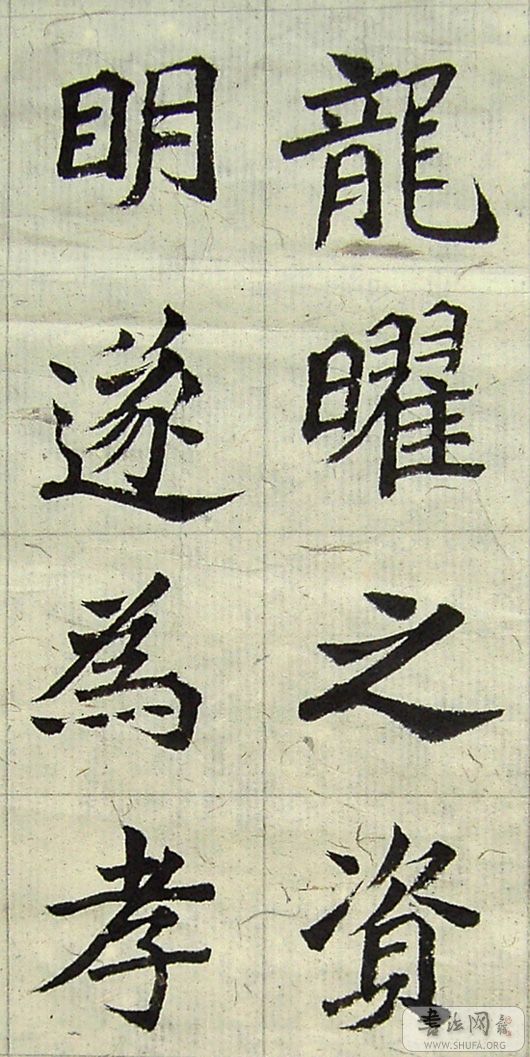 龍曜之資
明遂為孝
書法网
WWW.SHUFA.ORG